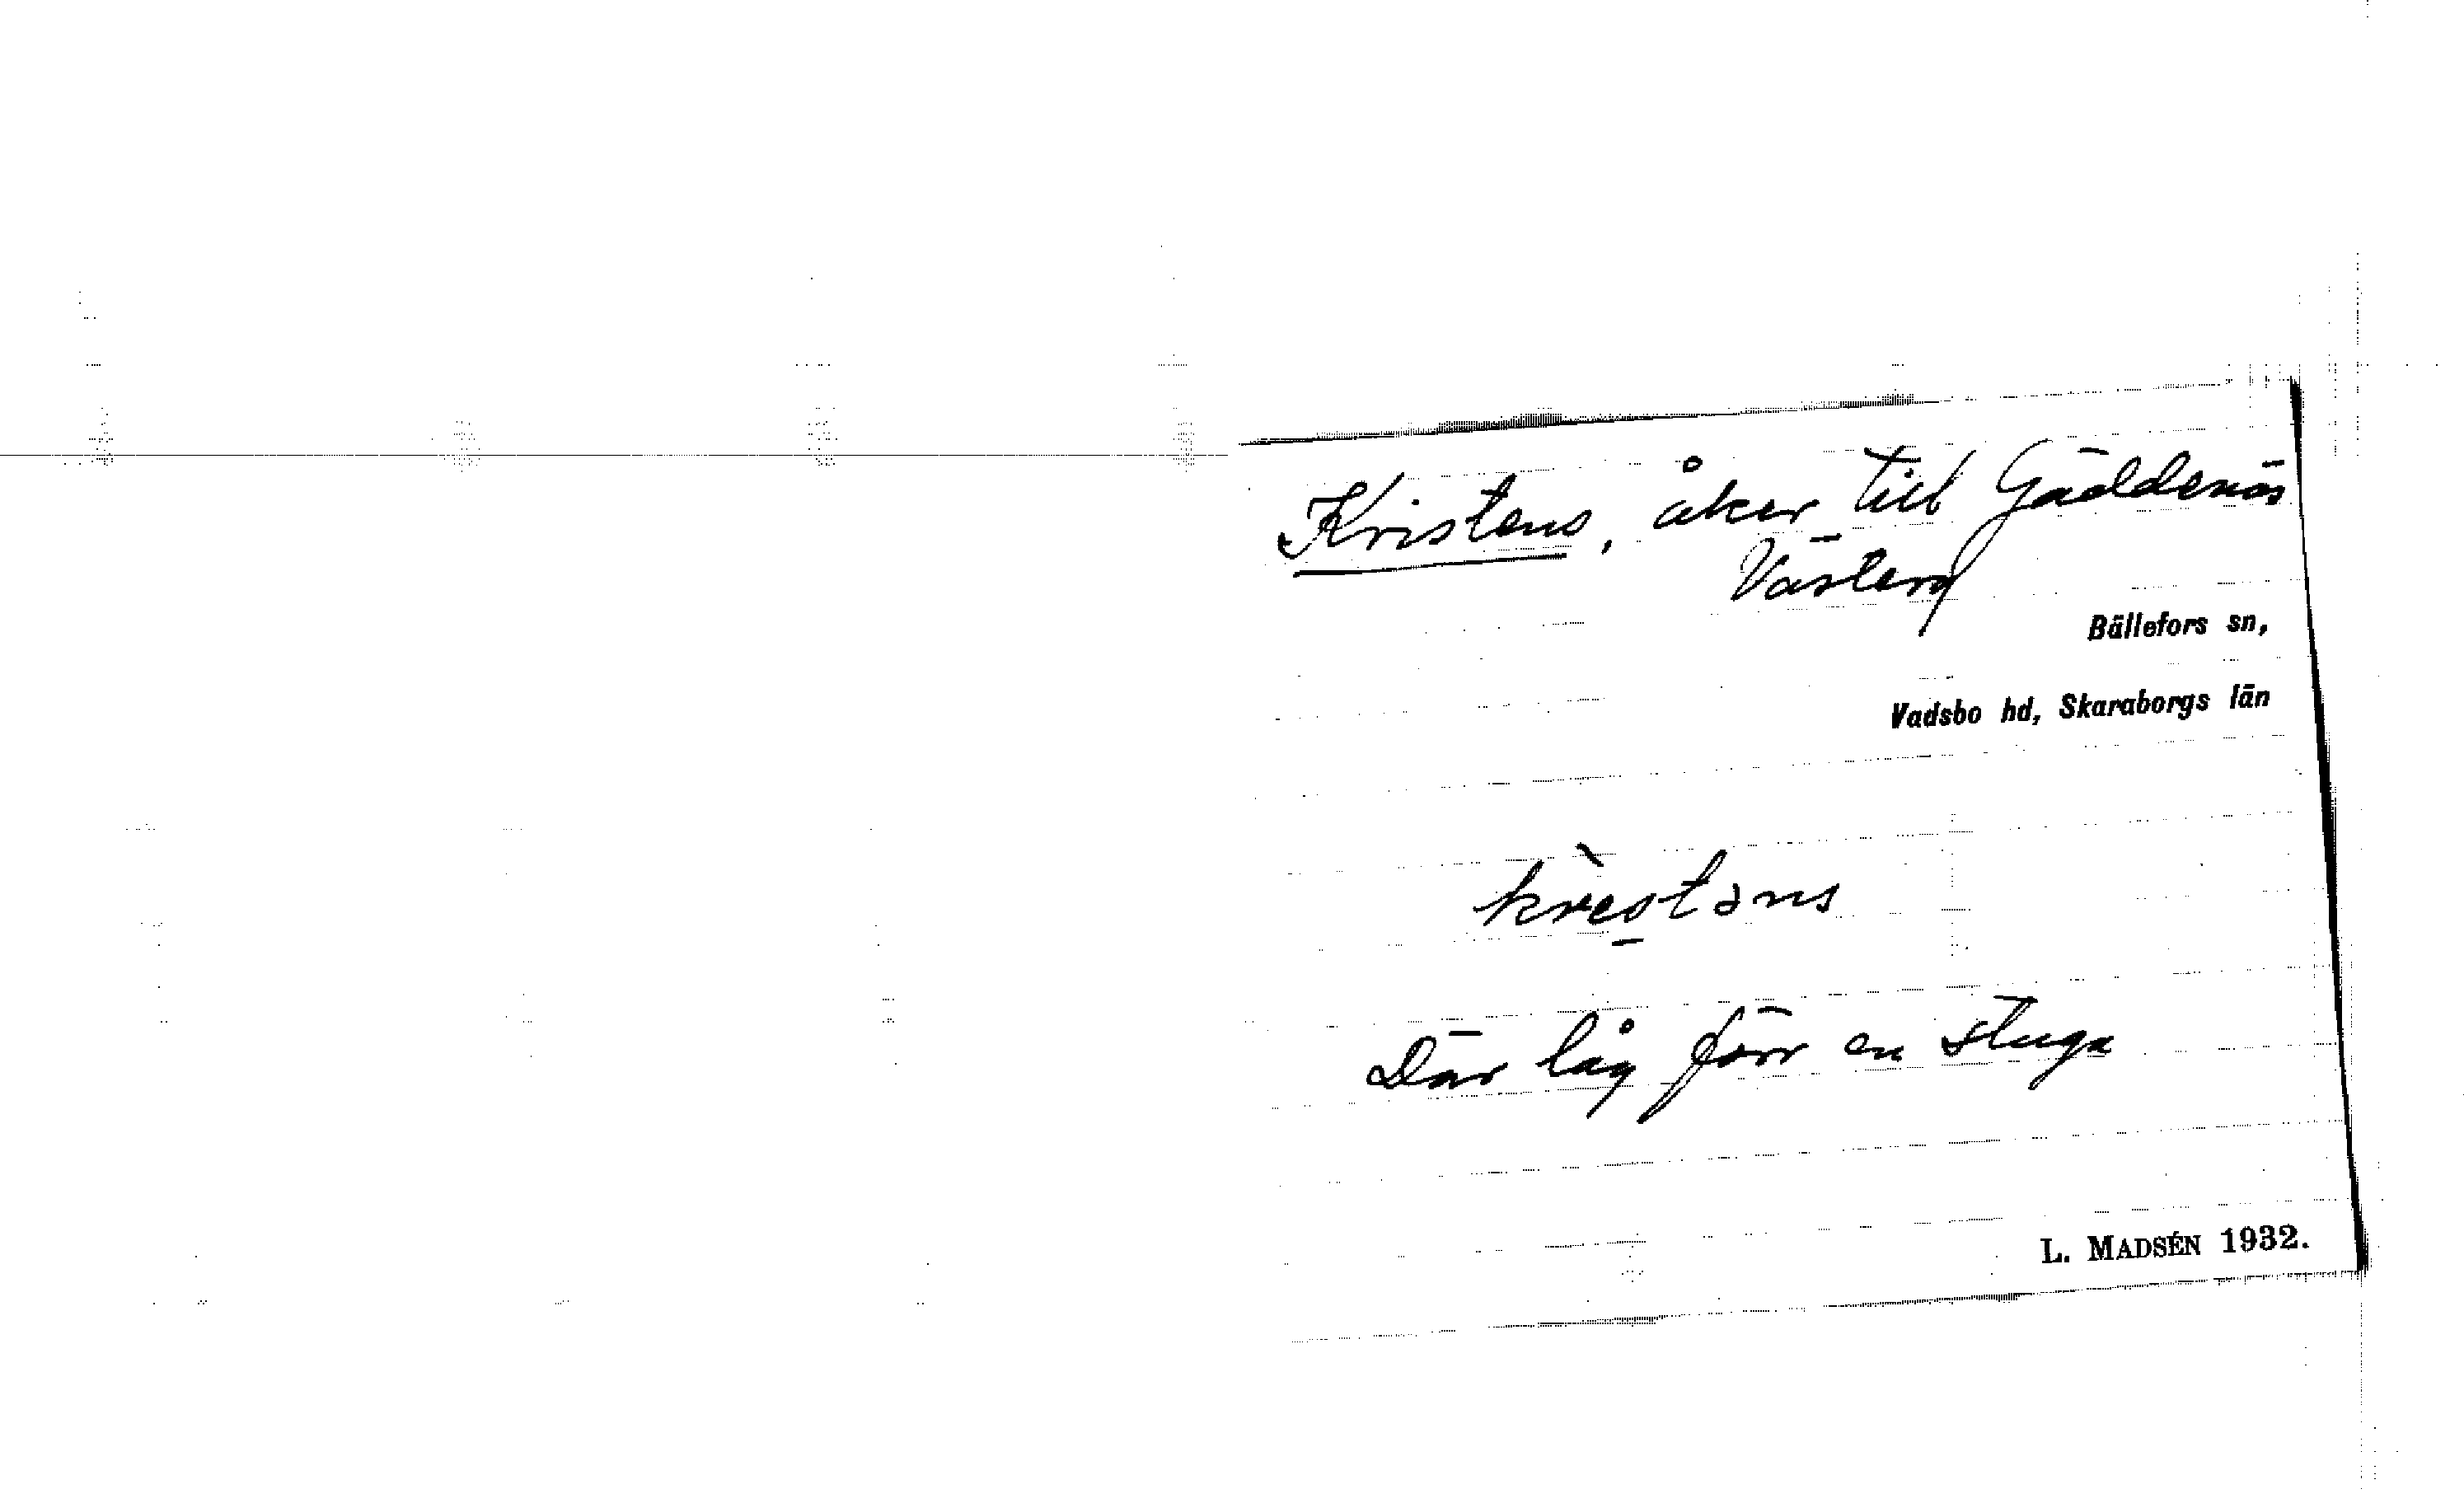 Kristens, åker till Gäddenäs
Västerg
Bällefors sn,
Vadsbo hd, Skaraborgs län
krèstəns
Där låg förr en stuga
L. MADSÉN 1932.